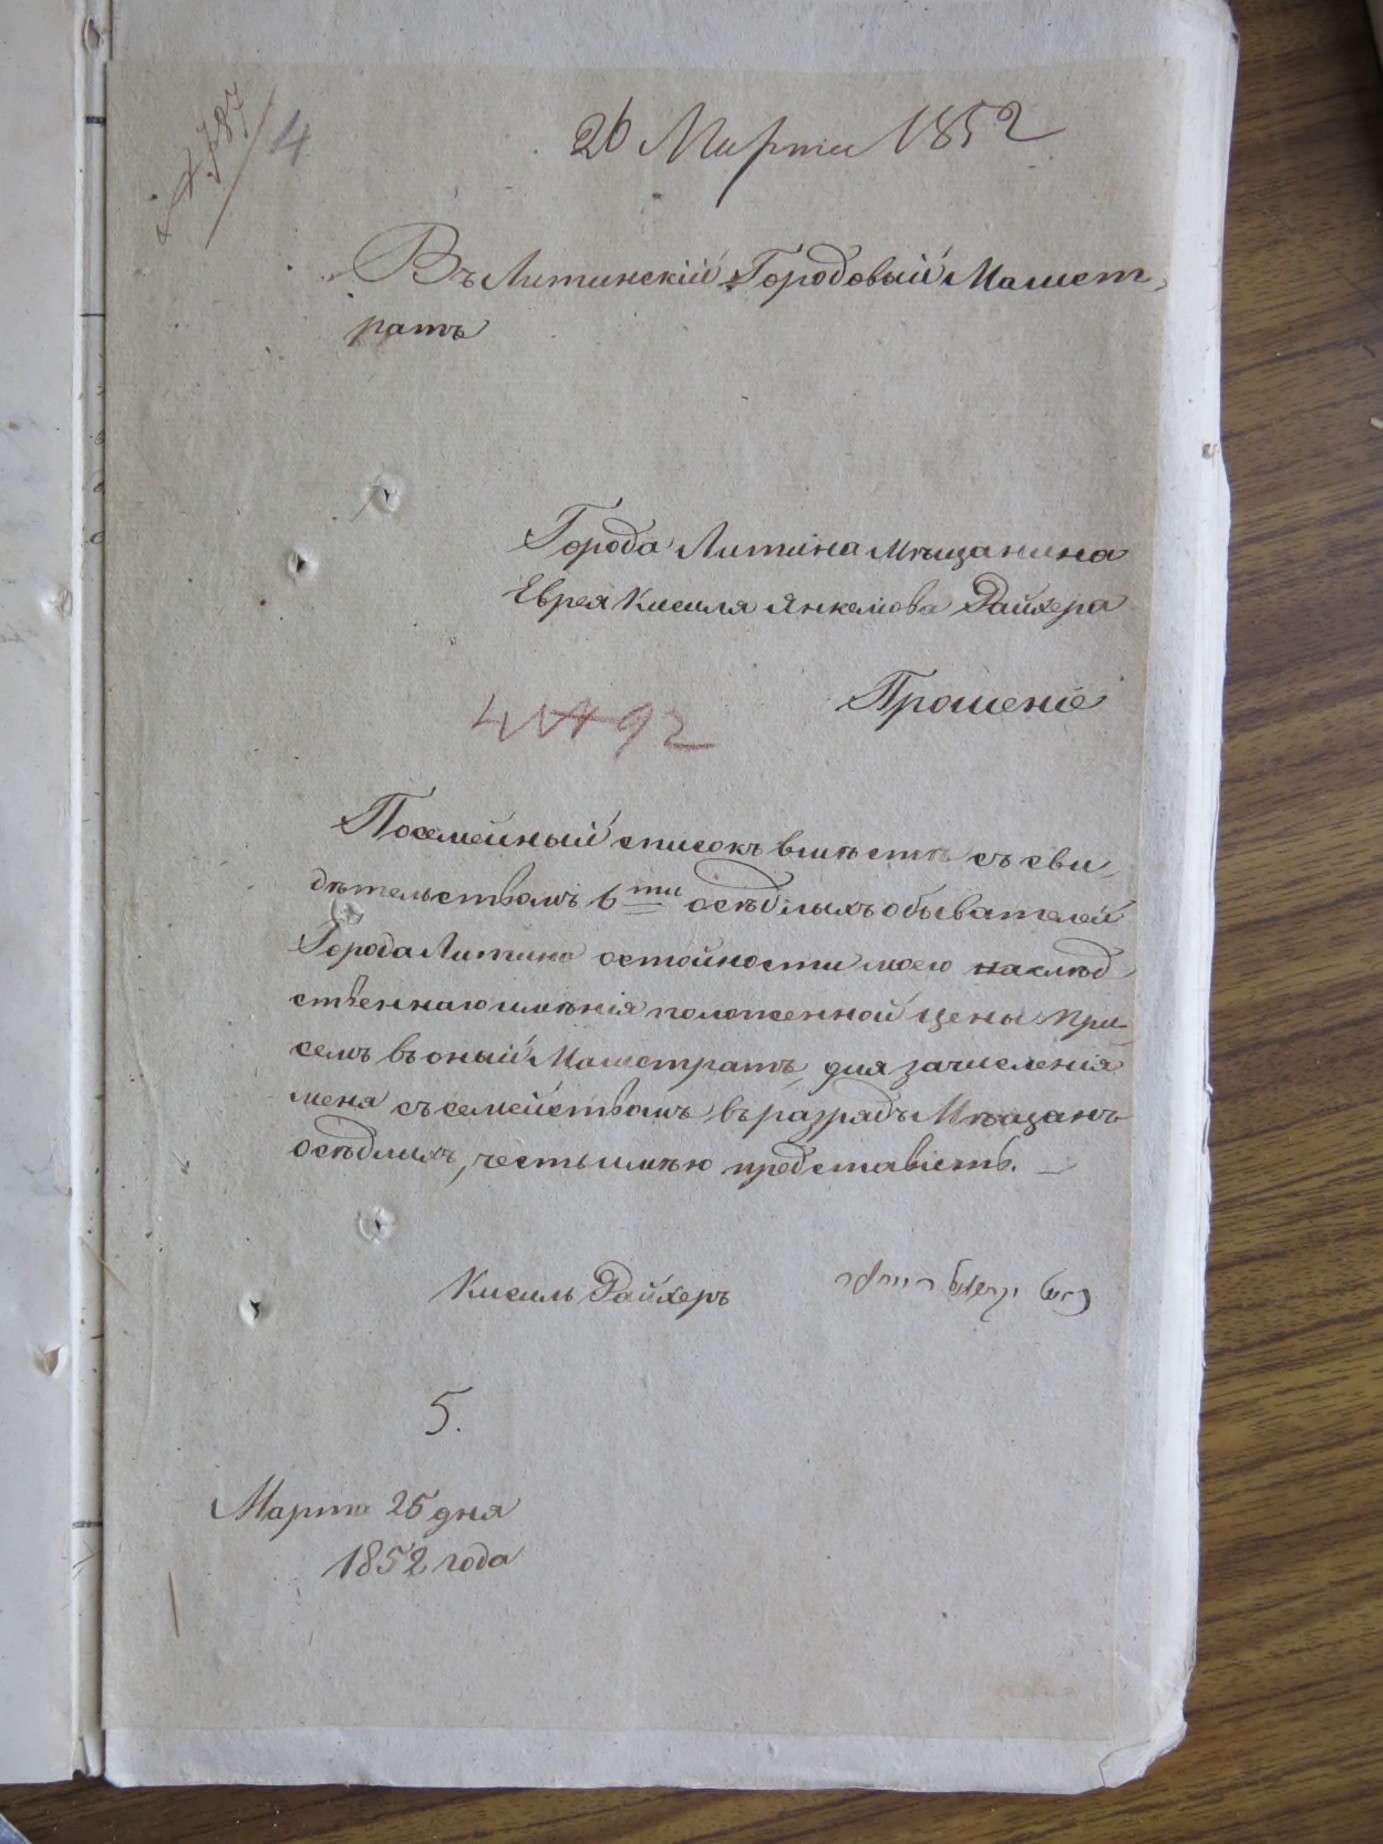 № 787
4
26 Марта 1852
Въ Литинскій Городовый Магист,
ратъ
Города Литина Мѣщанина
Еврея Кисиля Янкелиова Райхера
Прошеніе
92
Посемейный списокъ вмѣстѣ съ сви,
дѣтельствомъ 6ти осѣдлыхъ обывателей
Города Литина остойности моего наслѣд
ственнаго имѣнія положенной цены при
семъ въ оный Магистратъ, для зачисленія
меня съ семействомъ въ разрядъ Мѣщанъ
осѣдлихъ, честь имѣю представить. —
Кисиль Райхеръ
5.
Марта 25 дня
1852 года